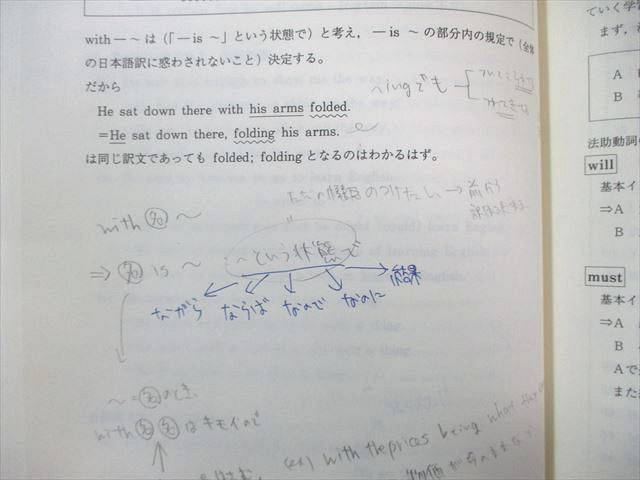 with — ～ は (「— is ～」という状態で) と考え, — is ～ の部分内の規定で (全体
の日本語訳に惑わされないこと) 決定する。
だから
He sat down there with his arms folded.
=He sat down there, folding his arms.
は同じ訳文であっても folded; folding となるのはわかるはず。
～ingでも
ただの情報のつけたし → 前から
with 名 ～
⇒ 名 is ～
～という状態で
ながら ならば なので なのに 結果
～=名のとき
with 名 名 はキモイので
(ex) with the prices being what
物価が今のままな
ていく学
まず,
A
B
法助動詞の
will
基本イ
⇒A
B
must
基本イ
⇒A
B
Aで
また